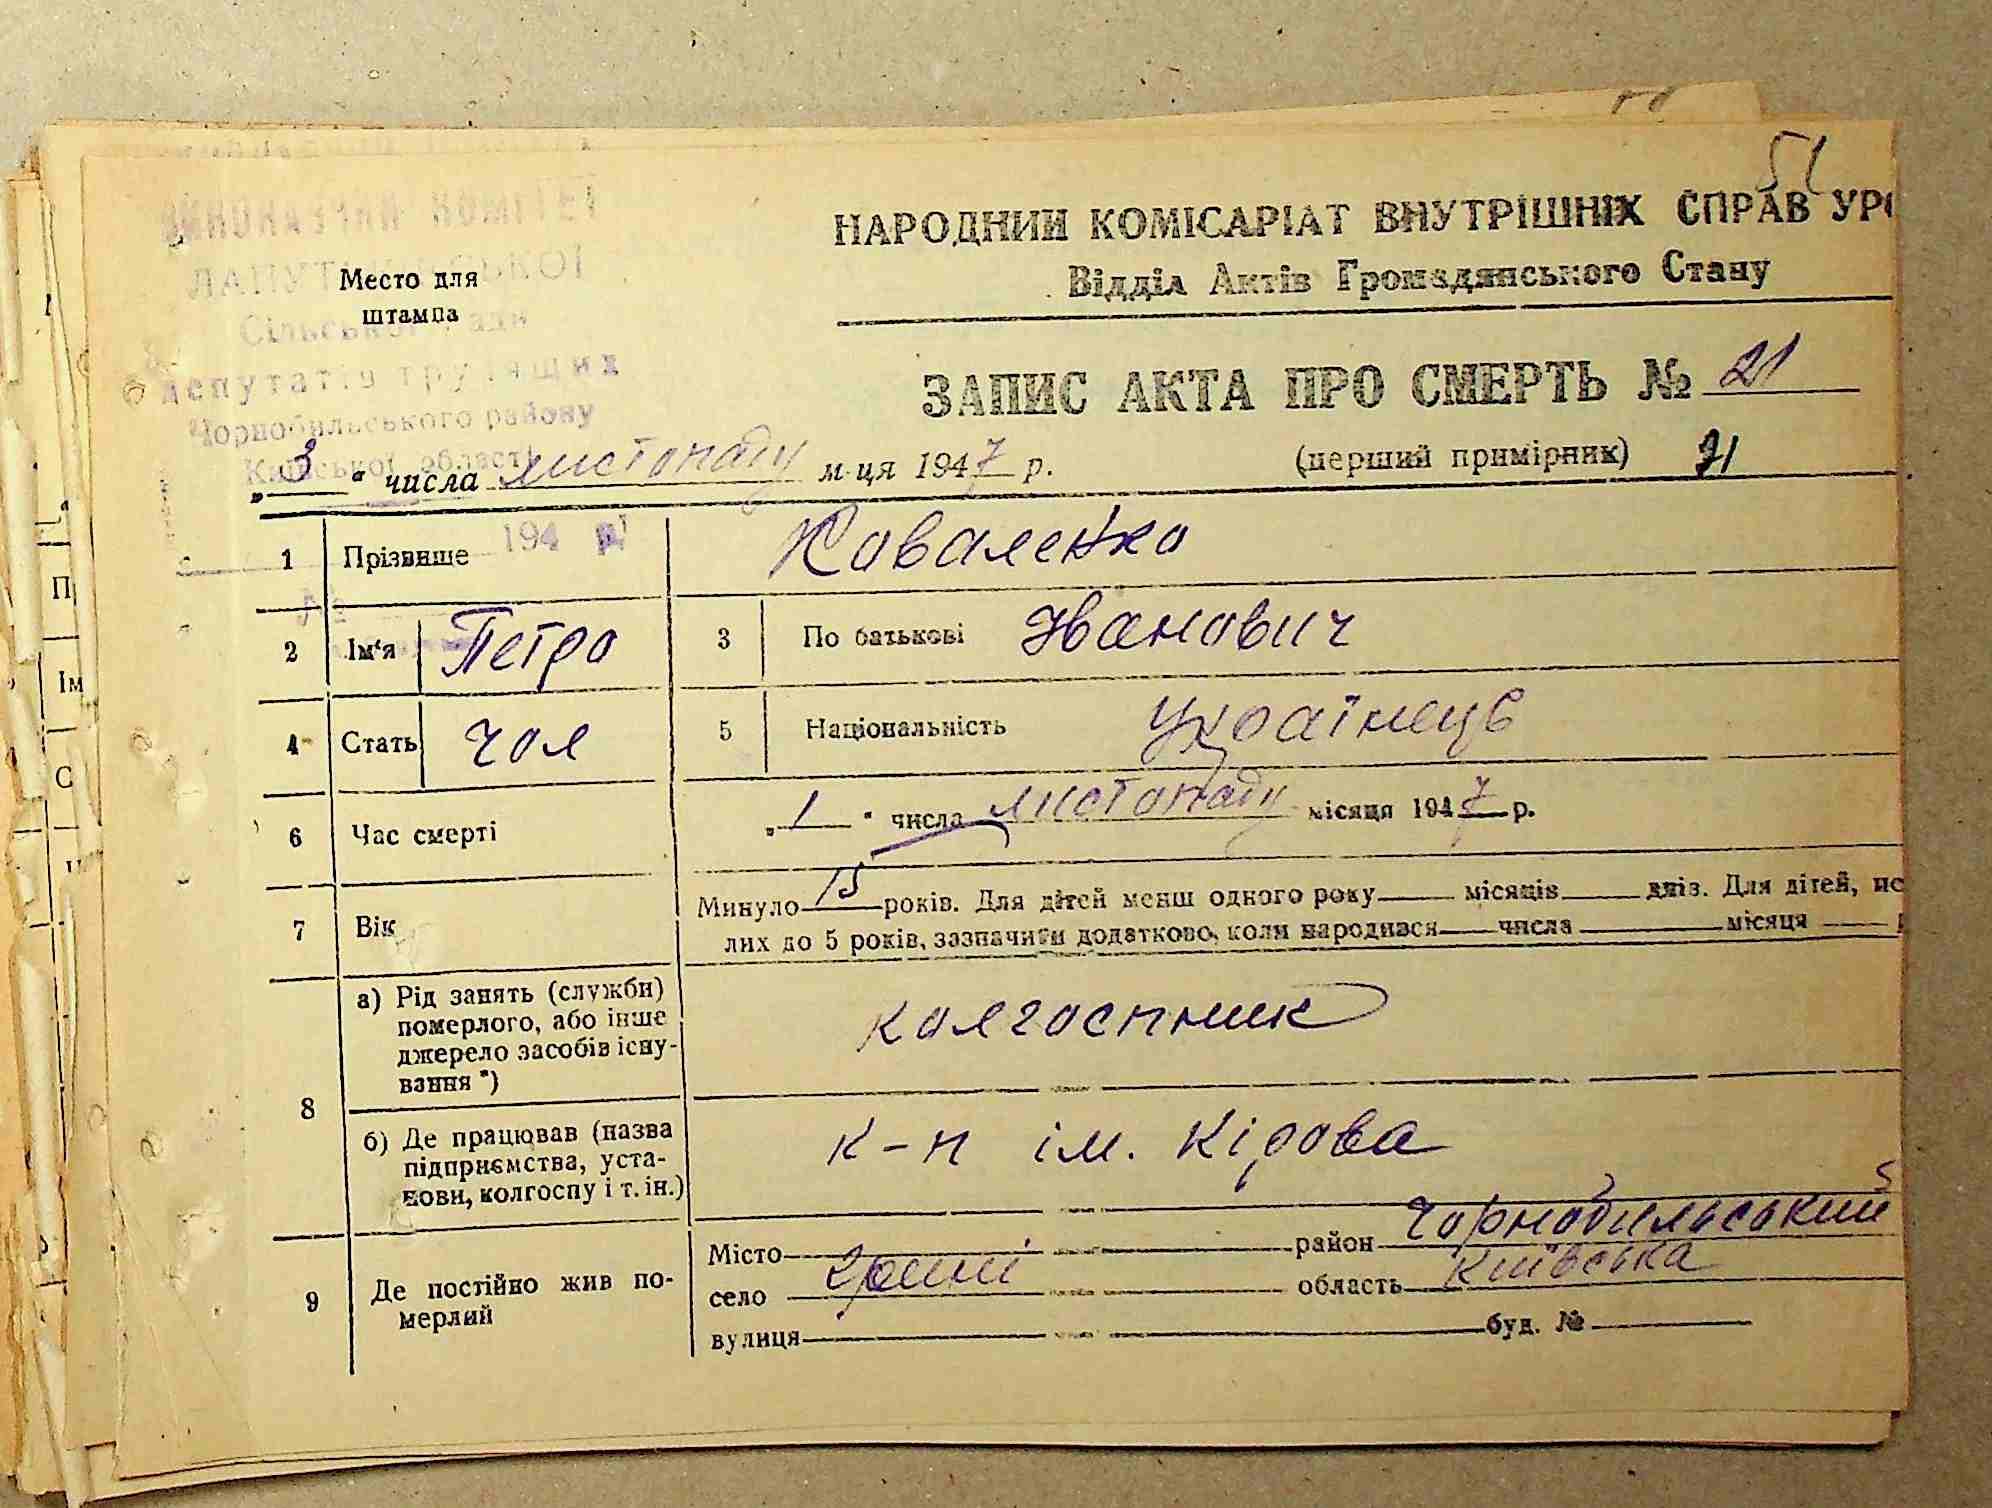 51
ВИКОНАВЧИЙ КОМІТЕТ
Сільської Ради
депутатів трудящих
Чорнобильського району
Київської області
194 р.
Место для
штампа
НАРОДНИЙ КОМІСАРІАТ ВНУТРІШНІХ СПРАВ УРС
Відділ Актів Громадянського Стану
ЗАПИС АКТА ПРО СМЕРТЬ № 21
„3“ числа листопаду м-ця 1947 р. (перший примірник) 21
1 Прізвище Коваленко
2 Ім‘я Петро 3 По батькові Іванович
4 Стать чол 5 Національність Українець
6 Час смерті „1“ числа листопаду місяця 1947 р.
7 Вік Минуло 15 років. Для дітей менш одного року місяців днів. Для дітей,
лих до 5 років, зазначити додатково, коли народився числа місяця
8 а) Рід занять (служби)
померлого, або інше
джерело засобів існу-
вання *)
колгоспник
б) Де працював (назва
підприємства, уста-
нови, колгоспу і т. ін.)
к-п ім. Кірова
9 Де постійно жив по-
мерлий
Місто район Чорнобильський
село область київська
вулиця буд. №
П
Ім
С